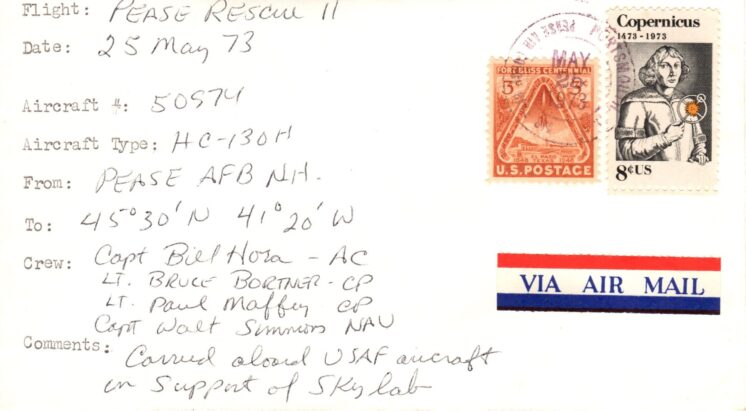 Flight: PEASE RESCUE 11
Date: 25 May 73
Aircraft #: 50974
Aircraft Type: HC-130H
From: PEASE AFB NH.
To: 45°30'N 41°20'W
Crew: Capt Bill Hora - AC
LT. BRUCE BORTNER - CP
LT. Paul Maffey CP
Capt Walt Simmons NAV
Comments: Carried aboard USAF aircraft
in Support of Skylab
PORTSMOUTH
PEASE
MAY
25
1973
FORT BLISS CENTENNIAL
3¢ 3¢
EL PASO
1848 1948
U.S. POSTAGE
Copernicus
1473-1973
8¢ US
VIA AIR MAIL